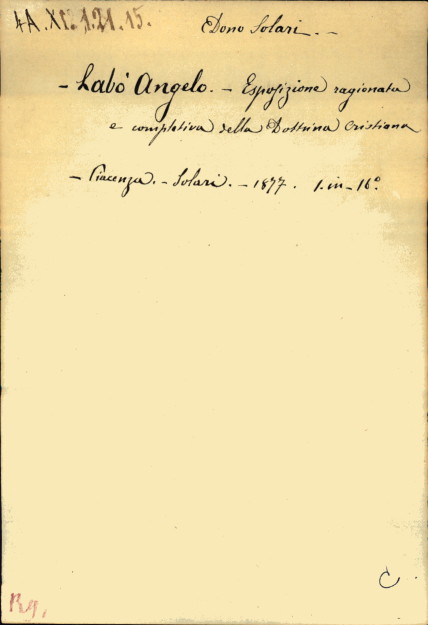 4A.XI.1.21.15.
Dono Solari. -
- Labò Angelo. - Esposizione ragionata
e completiva della Dottrina Cristiana
- Piacenza. - Solari. - 1877. 1. in - 16°.
C
Rg.